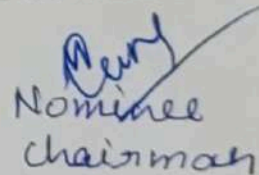 Nominee
Chairman